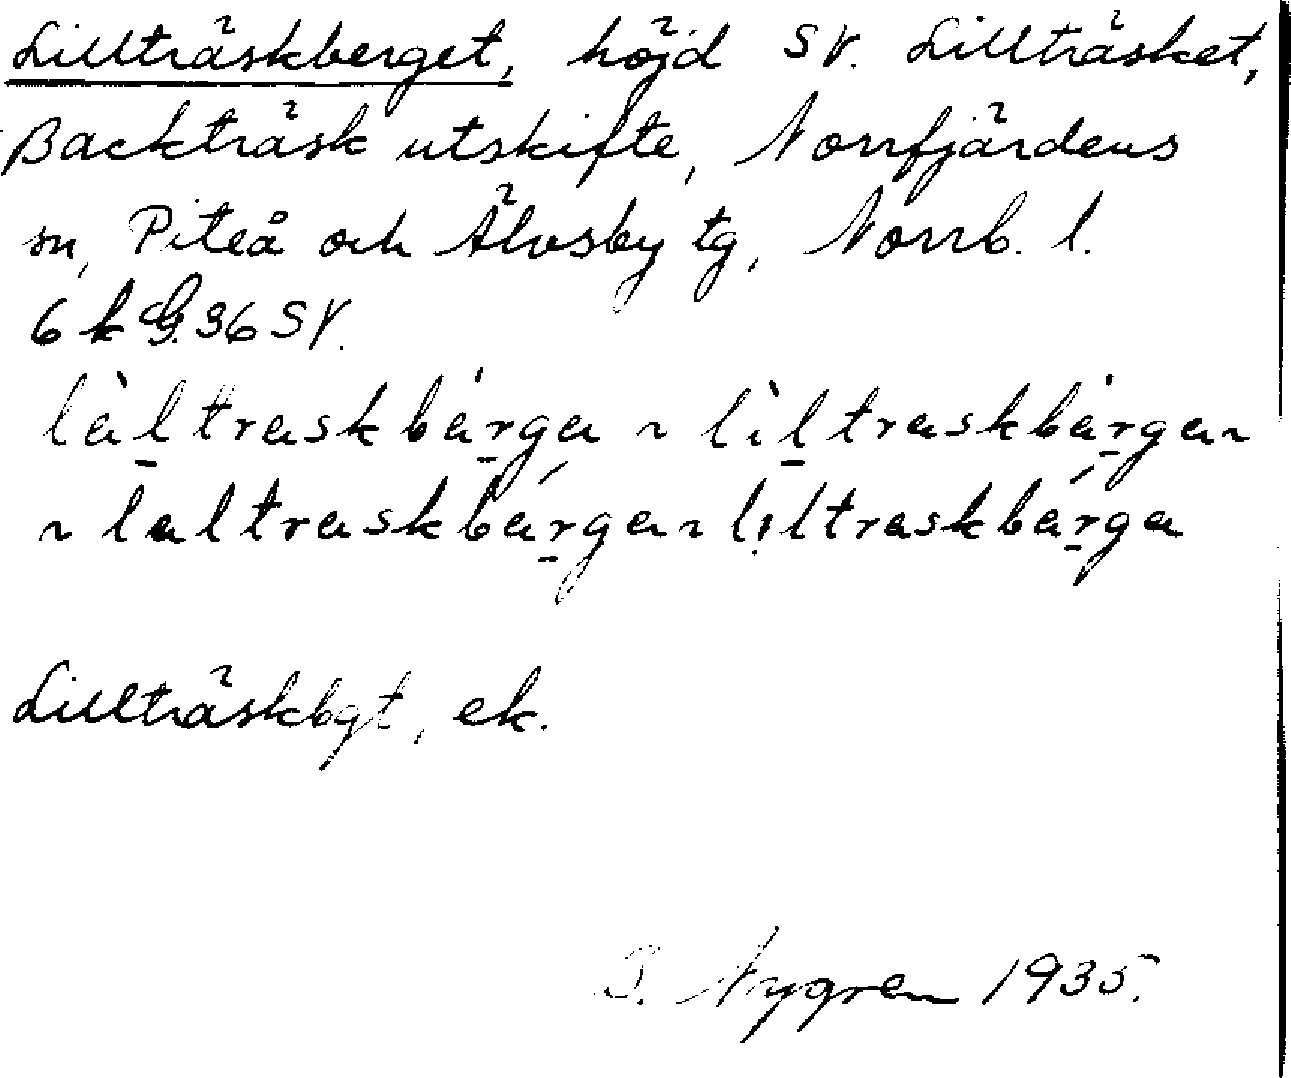 Lillträskberget, höjd SV. Lillträsket,
Backträsk utskifte, Norrfjärdens
sn, Piteå och Älvsby tg, Norrb. l.
6 k G.36 SV.
làl̲traskbár̲ga ~ lìl̲traskbár̲ga ~
~ laltraskbár̲ga ~ lıltraskbár̲ga
Lillträskbgt, ek.
Nygren 1935.